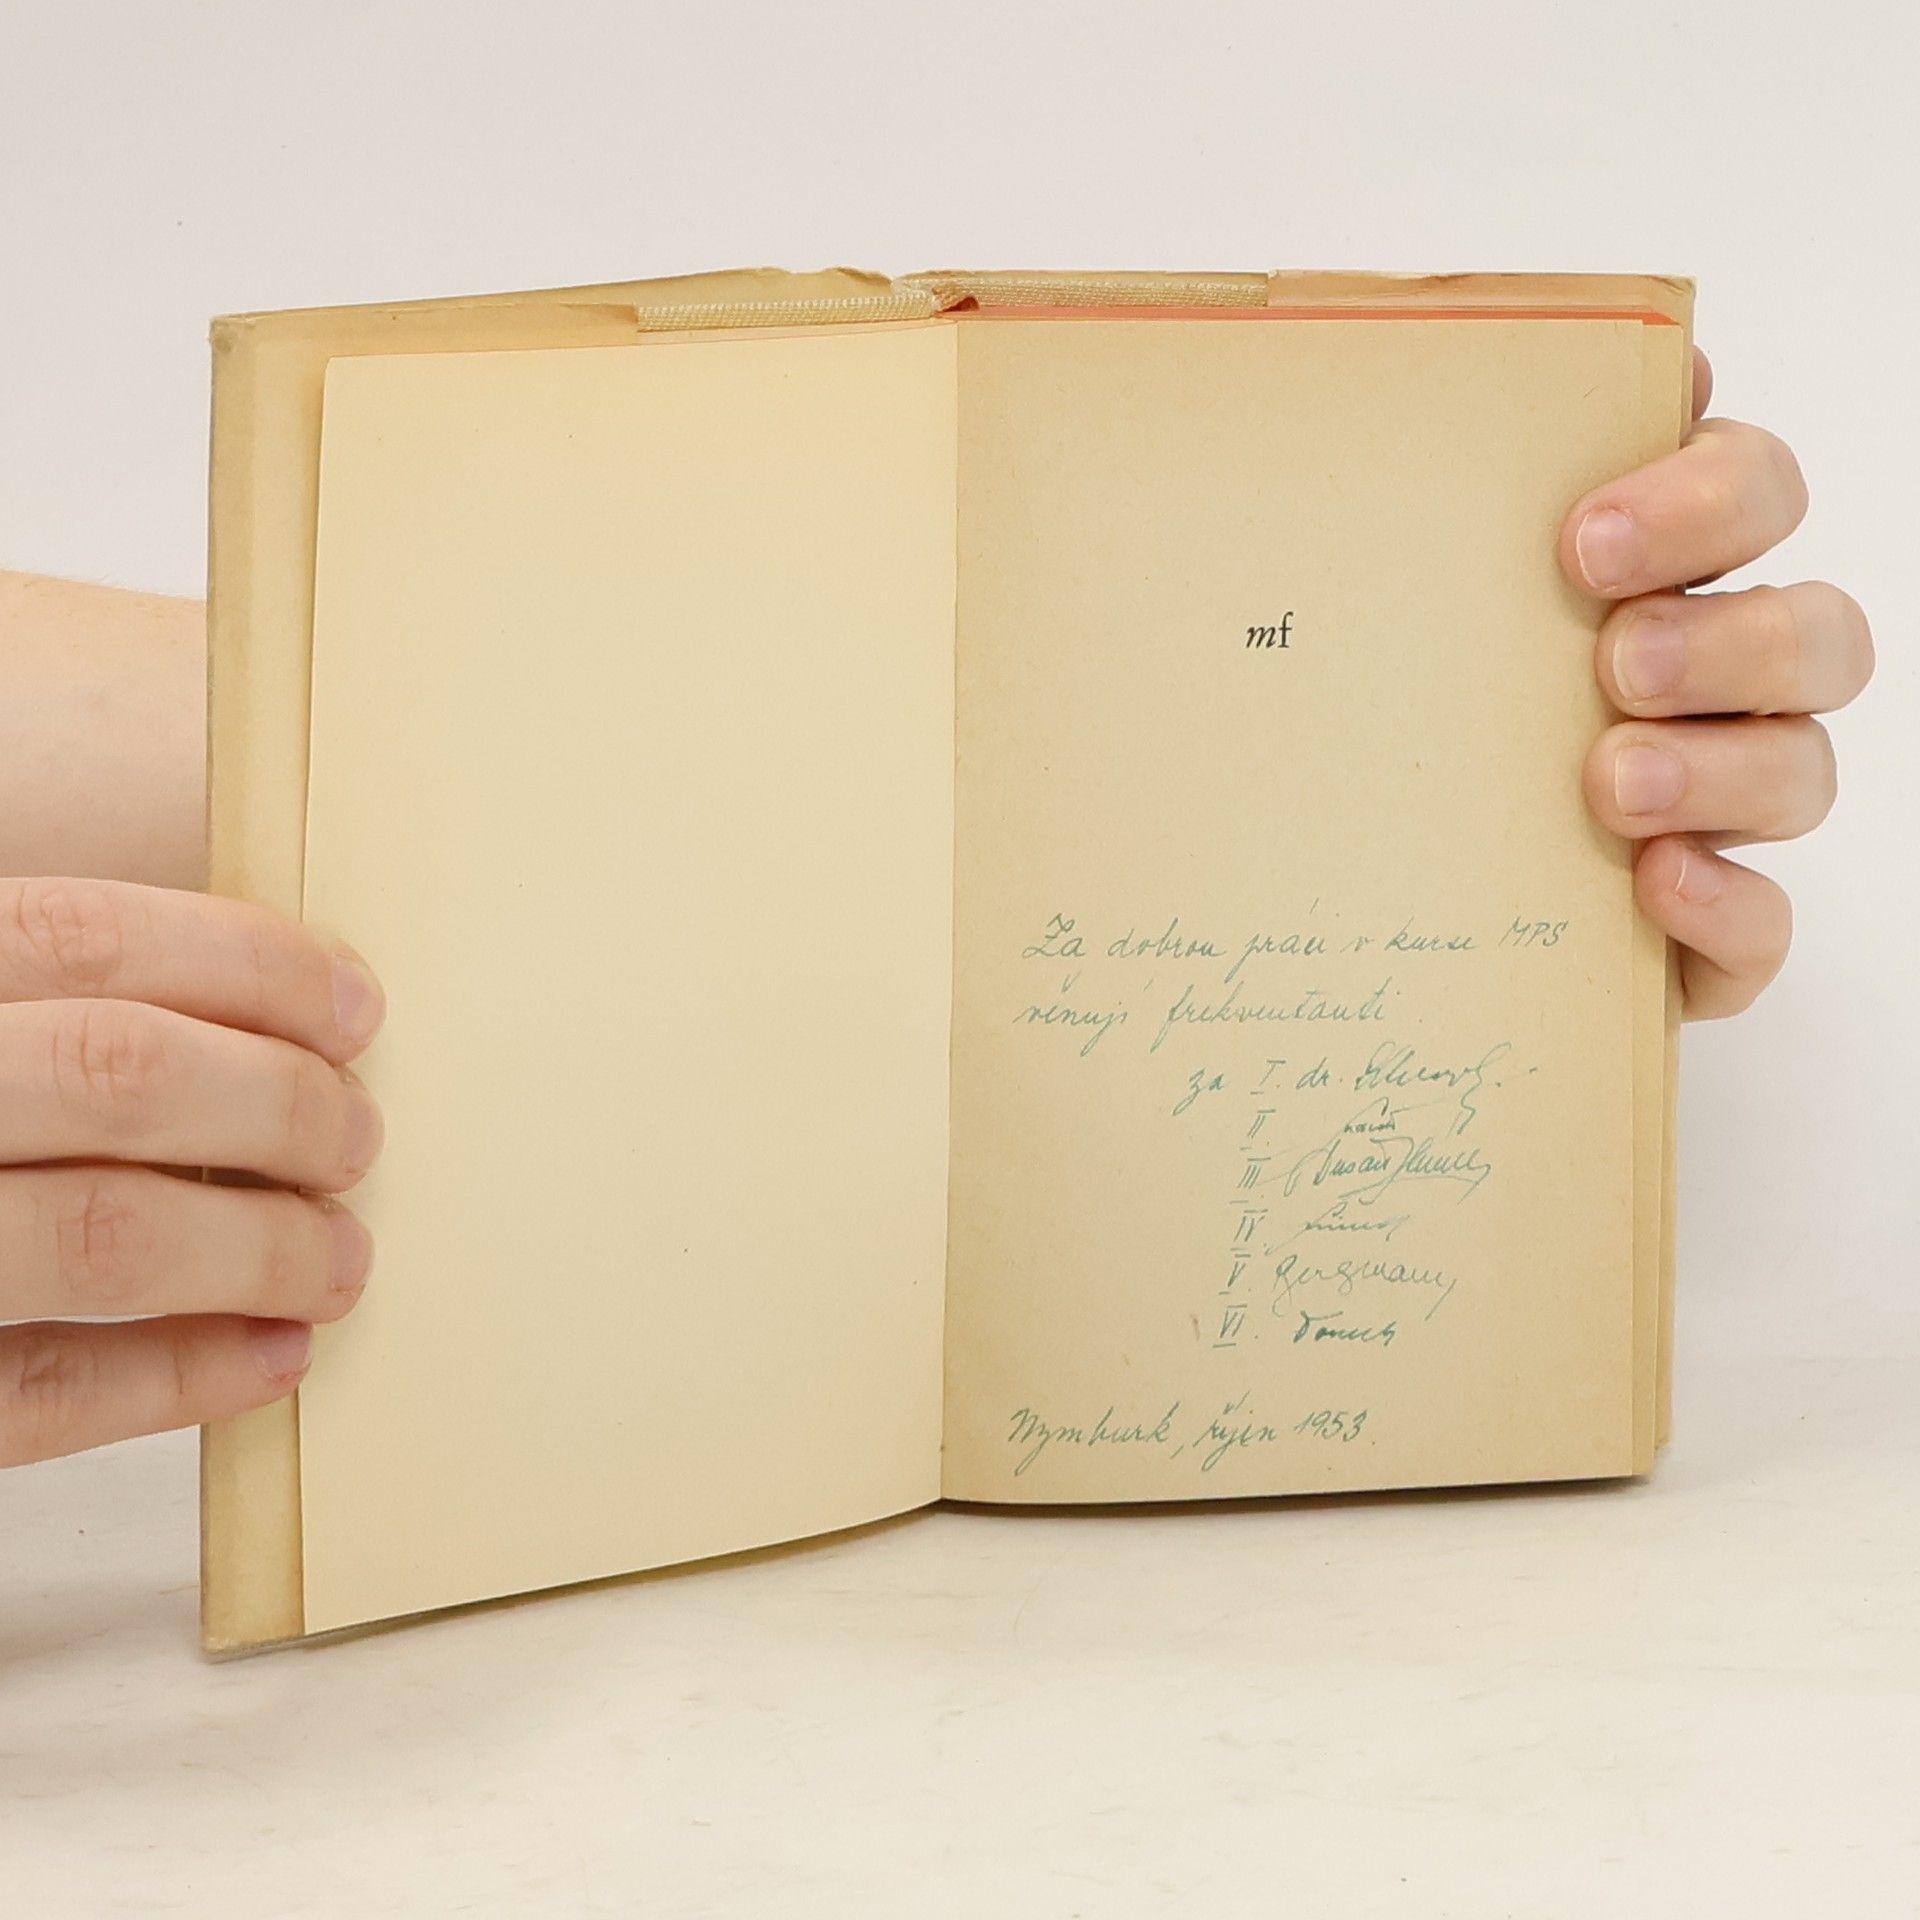 mf
Za dobrou práci v kurse MPS
věnují frekventanti
za I. dr.
II.
III. Dušan
IV.
V. Bergmann
VI.
Nymburk, říjen 1953.